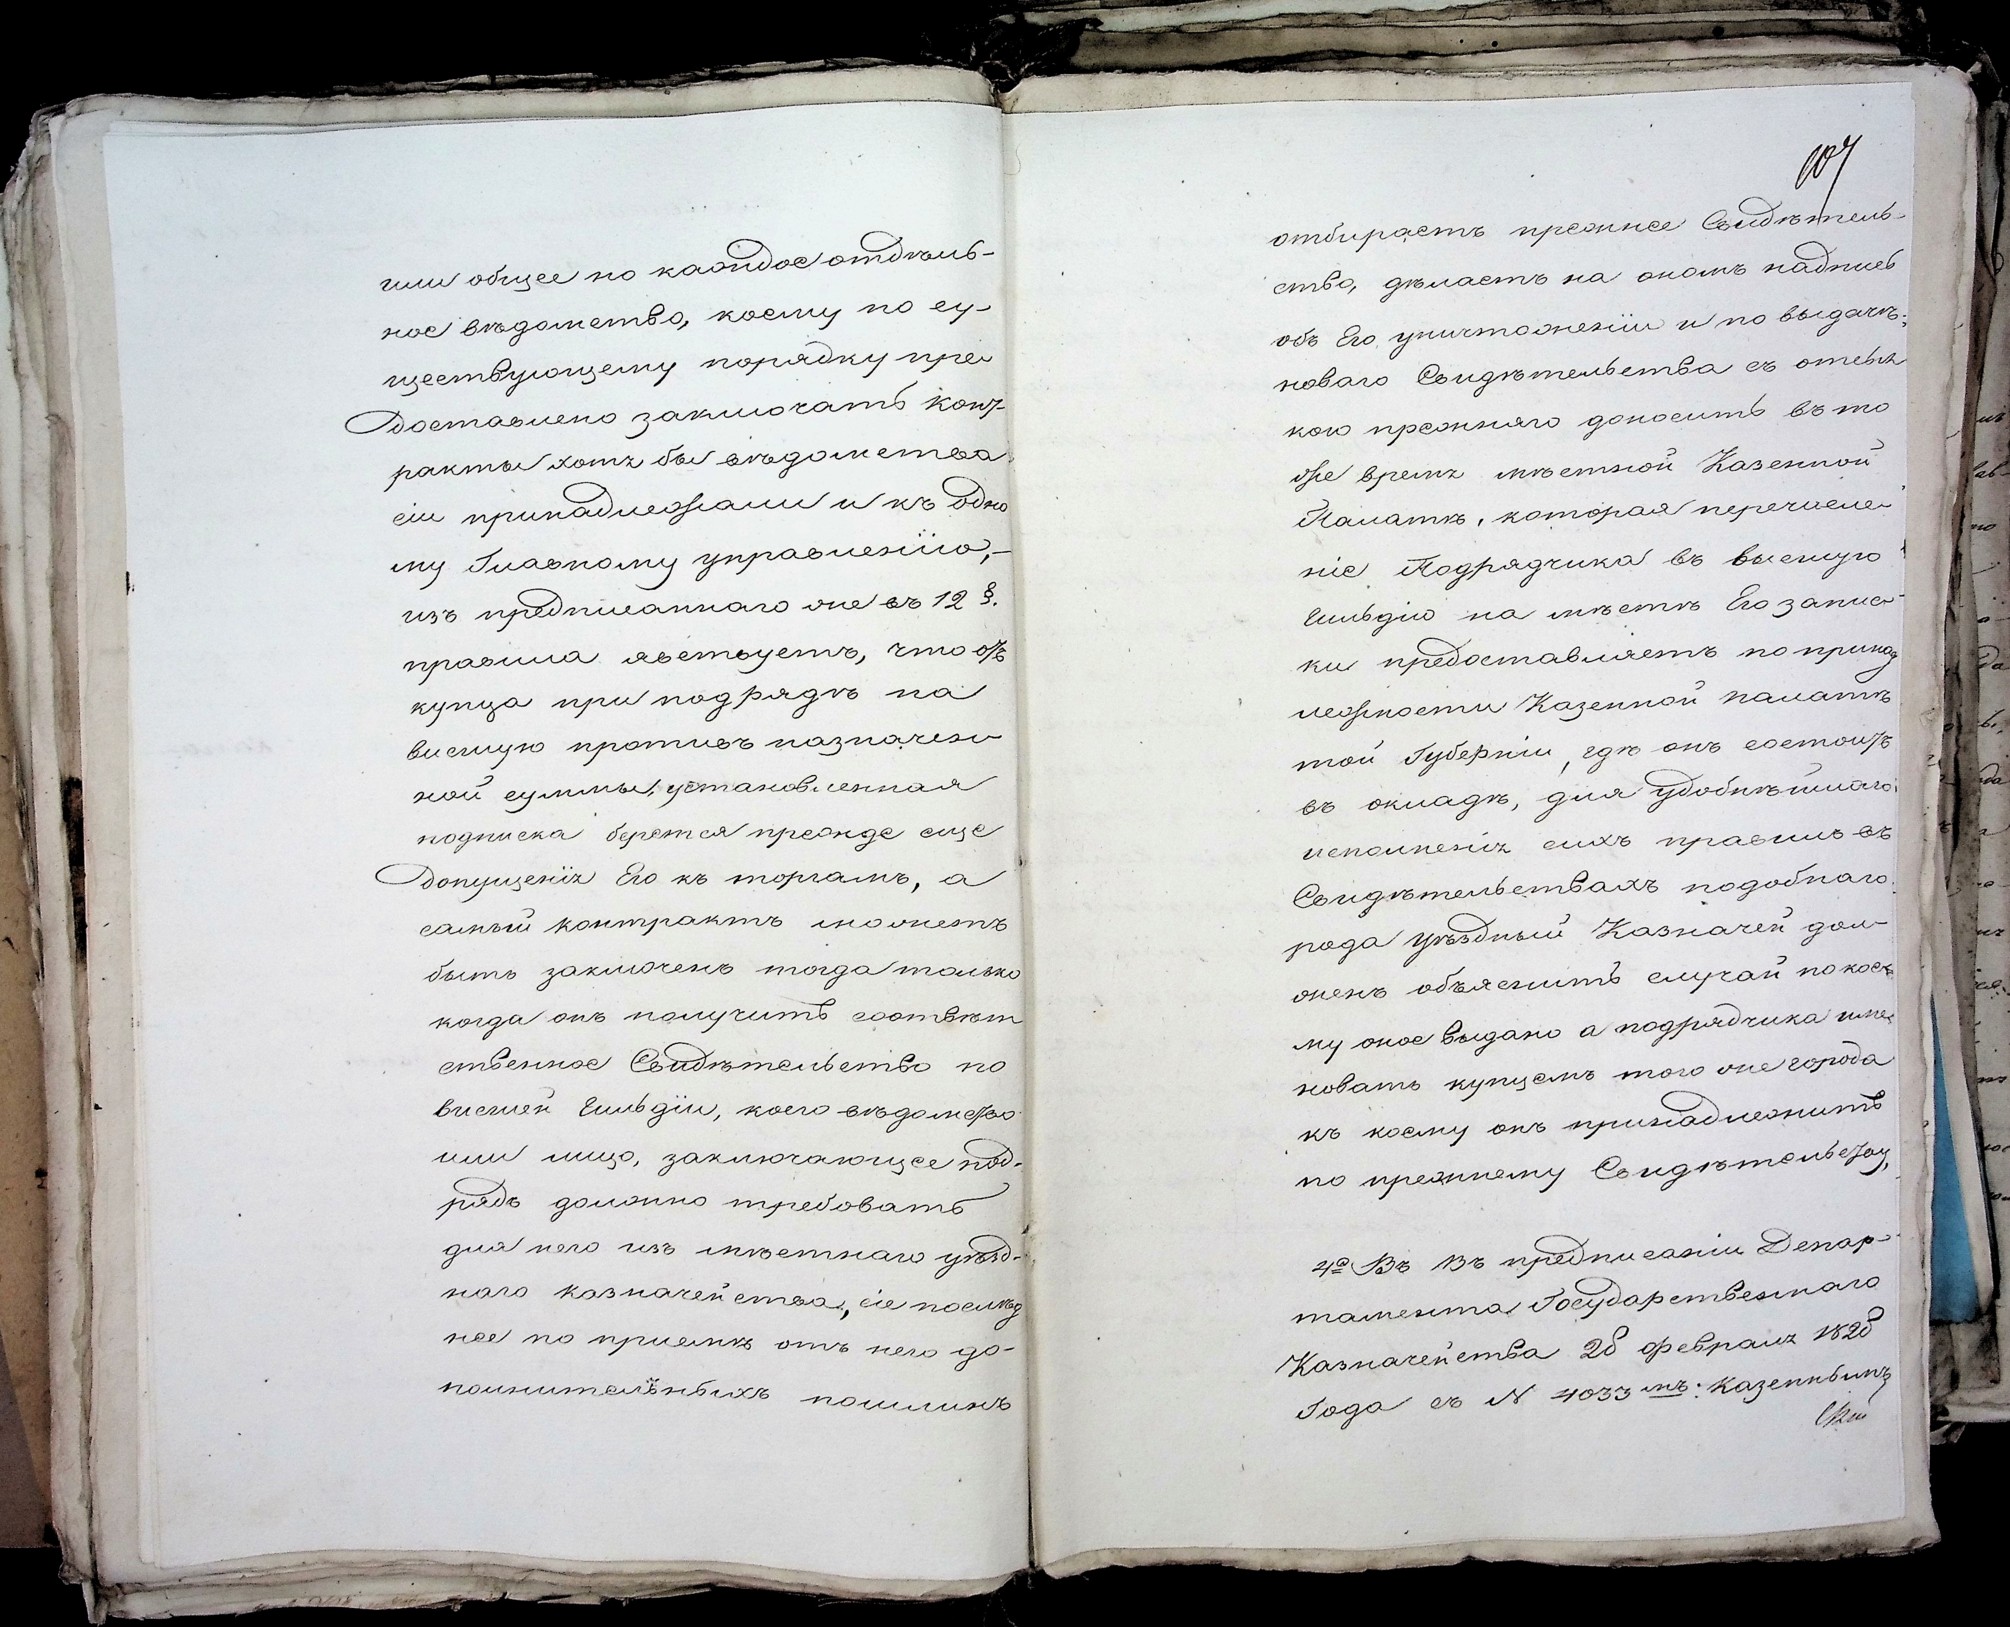 или общее но каждое отдѣль-
ное вѣдомство, коему по су-
ществующему порядку пре
доставлено заключать конт-
ракты хотя бы вѣдомства
сіи принадлежали и къ одно
му Главному управленїю,-
изъ предписаннаго же въ 12 §.
правила явствуетъ, что отъ
купца при подрядѣ на
высшую противъ назначен
ной суммы, установленная
подписка берется прежде еще
допущенїя Его къ торгамъ, а
самый контрактъ можетъ
быть заключенъ тогда только
когда онъ получитъ соотвѣт
ственное Свидѣтельство по
высшей Гильдїи, коего вѣдомство
или лицо, заключающее под-
рядъ должно требовать
для него изъ мѣстнаго уѣзд-
наго казначейства, сіе послѣд
нее по приемѣ отъ него до-
полнительныхъ пошлинъ
107
отбираетъ прежнее Свидѣтель-
ство, дѣлаетъ на ономъ надпись
объ Его уничтоженїи и по выдачѣ
новаго Свидѣтельства съ отсыл
кою прежняго доноситъ въ то
же время мѣстной Казенной
Палатѣ, которая перечисле-
ніе Подрядчика въ высшую
Гильдію на мѣстѣ Его запис-
ки предоставляетъ по принад
лежности Казенной палатѣ
той Губерніи, гдѣ онъ состоитъ
въ окладѣ, для удобнѣйшаго
исполненія сихъ правилъ въ
Свидѣтельствахъ подобнаго
рода уѣздный Казначей дол-
женъ объяснить случай по кое
му оное выдано а подрядчика име
новать купцемъ того же города
къ коему онъ принадлежитъ
по прежнему Свидѣтельству,
4е Въ Въ предписаніи Депар-
тамента Государственнаго
Казначейства 26 февраля 1826
Года съ N 4033 мъ: казеннымъ